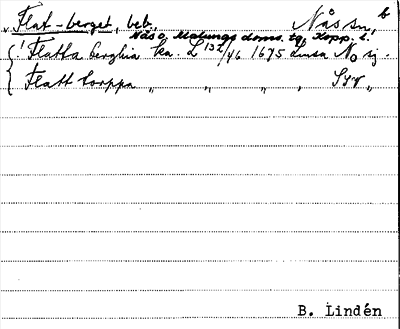 Flat-berget, beb., Nås sn, b
Nås o. Malungs doms. tg, Kopp. l.
Flatha berghia ka. L 132/46 1675 Lima No sj.
Flatt torppa " " " , S:r "
B. Lindén